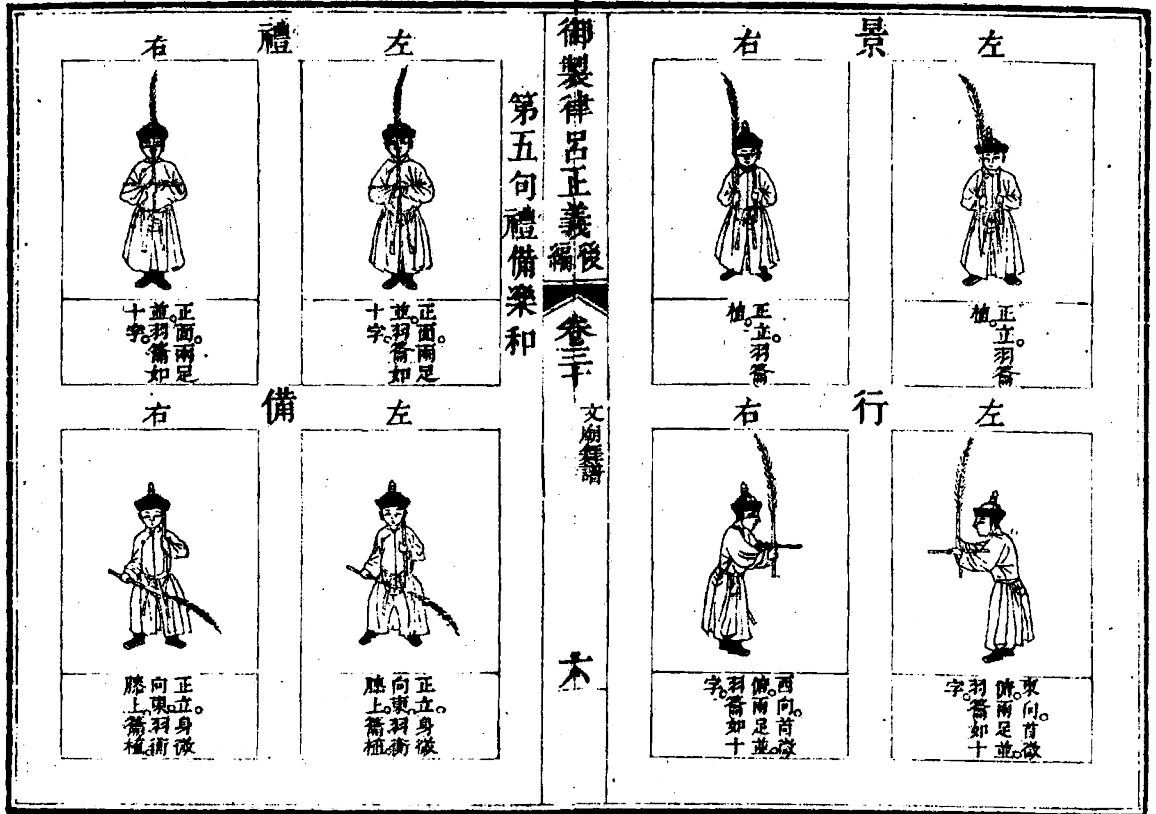 景
左
正立。羽籥
植。
右
正立。羽籥
植。
行
左
東向。首微
俯。兩足並。
羽籥如十
字。
右
西向。首微
俯。兩足並。
羽籥如十
字。
御製律呂正義後編
卷三十
文廟舞譜
第五句禮備樂和
禮
左
正面。兩足
並。羽籥如
十字。
右
正面。兩足
並。羽籥如
十字。
備
左
正立。身微
向東。羽衡
膝上。籥植。
右
正立。身微
向東。羽衡
膝上。籥植。